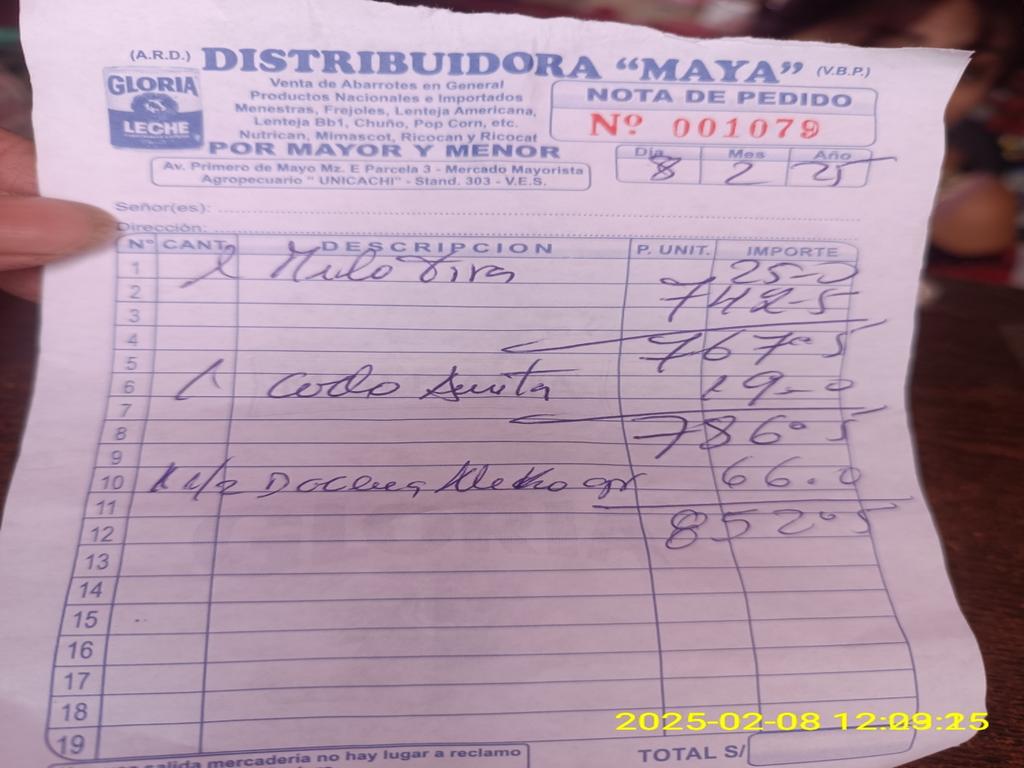 (A.R.D.) DISTRIBUIDORA “MAYA” (V.B.P.)
GLORIA
LECHE
Venta de Abarrotes en General
Productos Nacionales e Importados
Menestras, Frejoles, Lenteja Americana,
Lenteja Bb1, Chuño, Pop Corn, etc.
Nutrican, Mimascot, Ricocan y Ricocat
POR MAYOR Y MENOR
Av. Primero de Mayo Mz. E Parcela 3 - Mercado Mayorista
Agropecuario " UNICACHI" - Stand. 303 - V.E.S.
NOTA DE PEDIDO
Nº 001079
Día Mes Año
8 2 25
Señor(es):
Dirección:
Nº CANT. DESCRIPCION P. UNIT. IMPORTE
1 Tira 25-0
2 742-5
3
4 767.5
5
6 1 Codo 19-0
7
8 786.5
9
10 1 1/2 Docena 66.0
11
12 852.5
13
14
15
16
17
18
19
salida mercadería no hay lugar a reclamo
TOTAL S/
2025-02-08 12:09:15